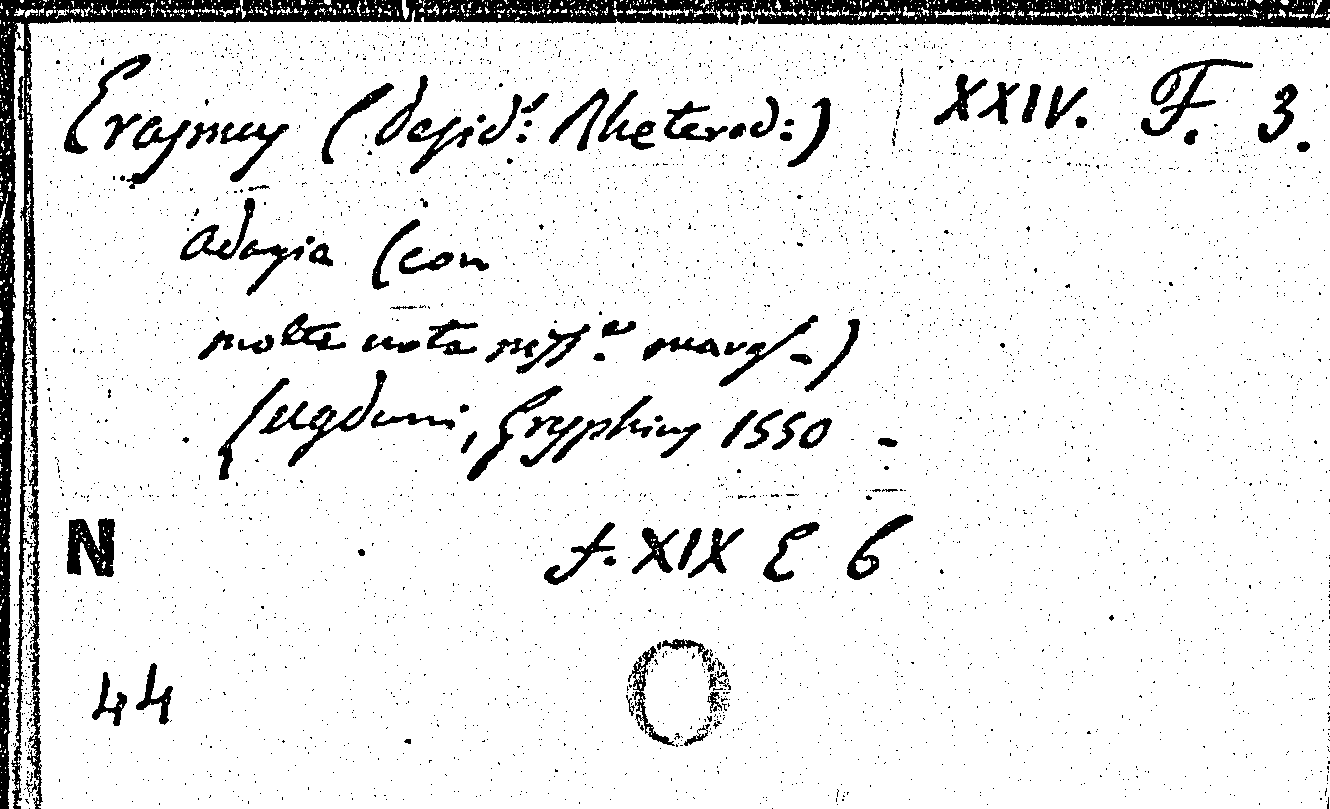 Erasmus (Desid.s Rheterod:) XXIV. F. 3.
Adagia (con
molte note mss.e marg.)
Lugduni, Gryphius 1550 -
f. XIX E 6
N
44